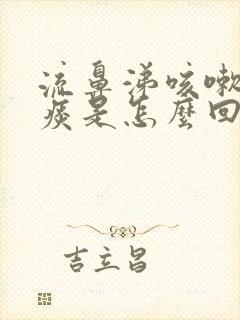 流鼻涕咳嗽
痰是怎麼回
吉立昌